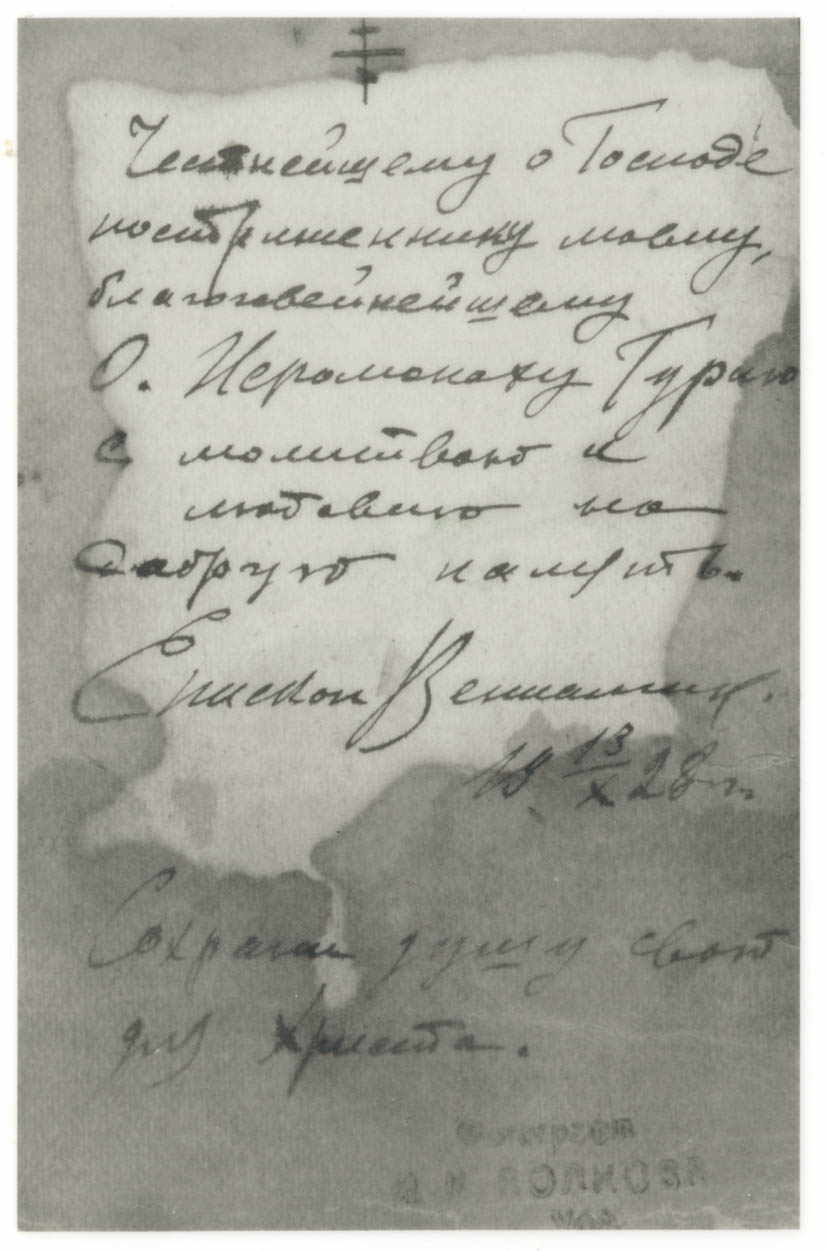 Честнейшему о Господе
постриженнику моему,
благоговейнейшему
О. Иеромонаху Гурию
с молитвою и
любовию на
добрую память.
Епископ Вениамин.
19 13/X 28 г.
Сохрани душу свою
для Христа.